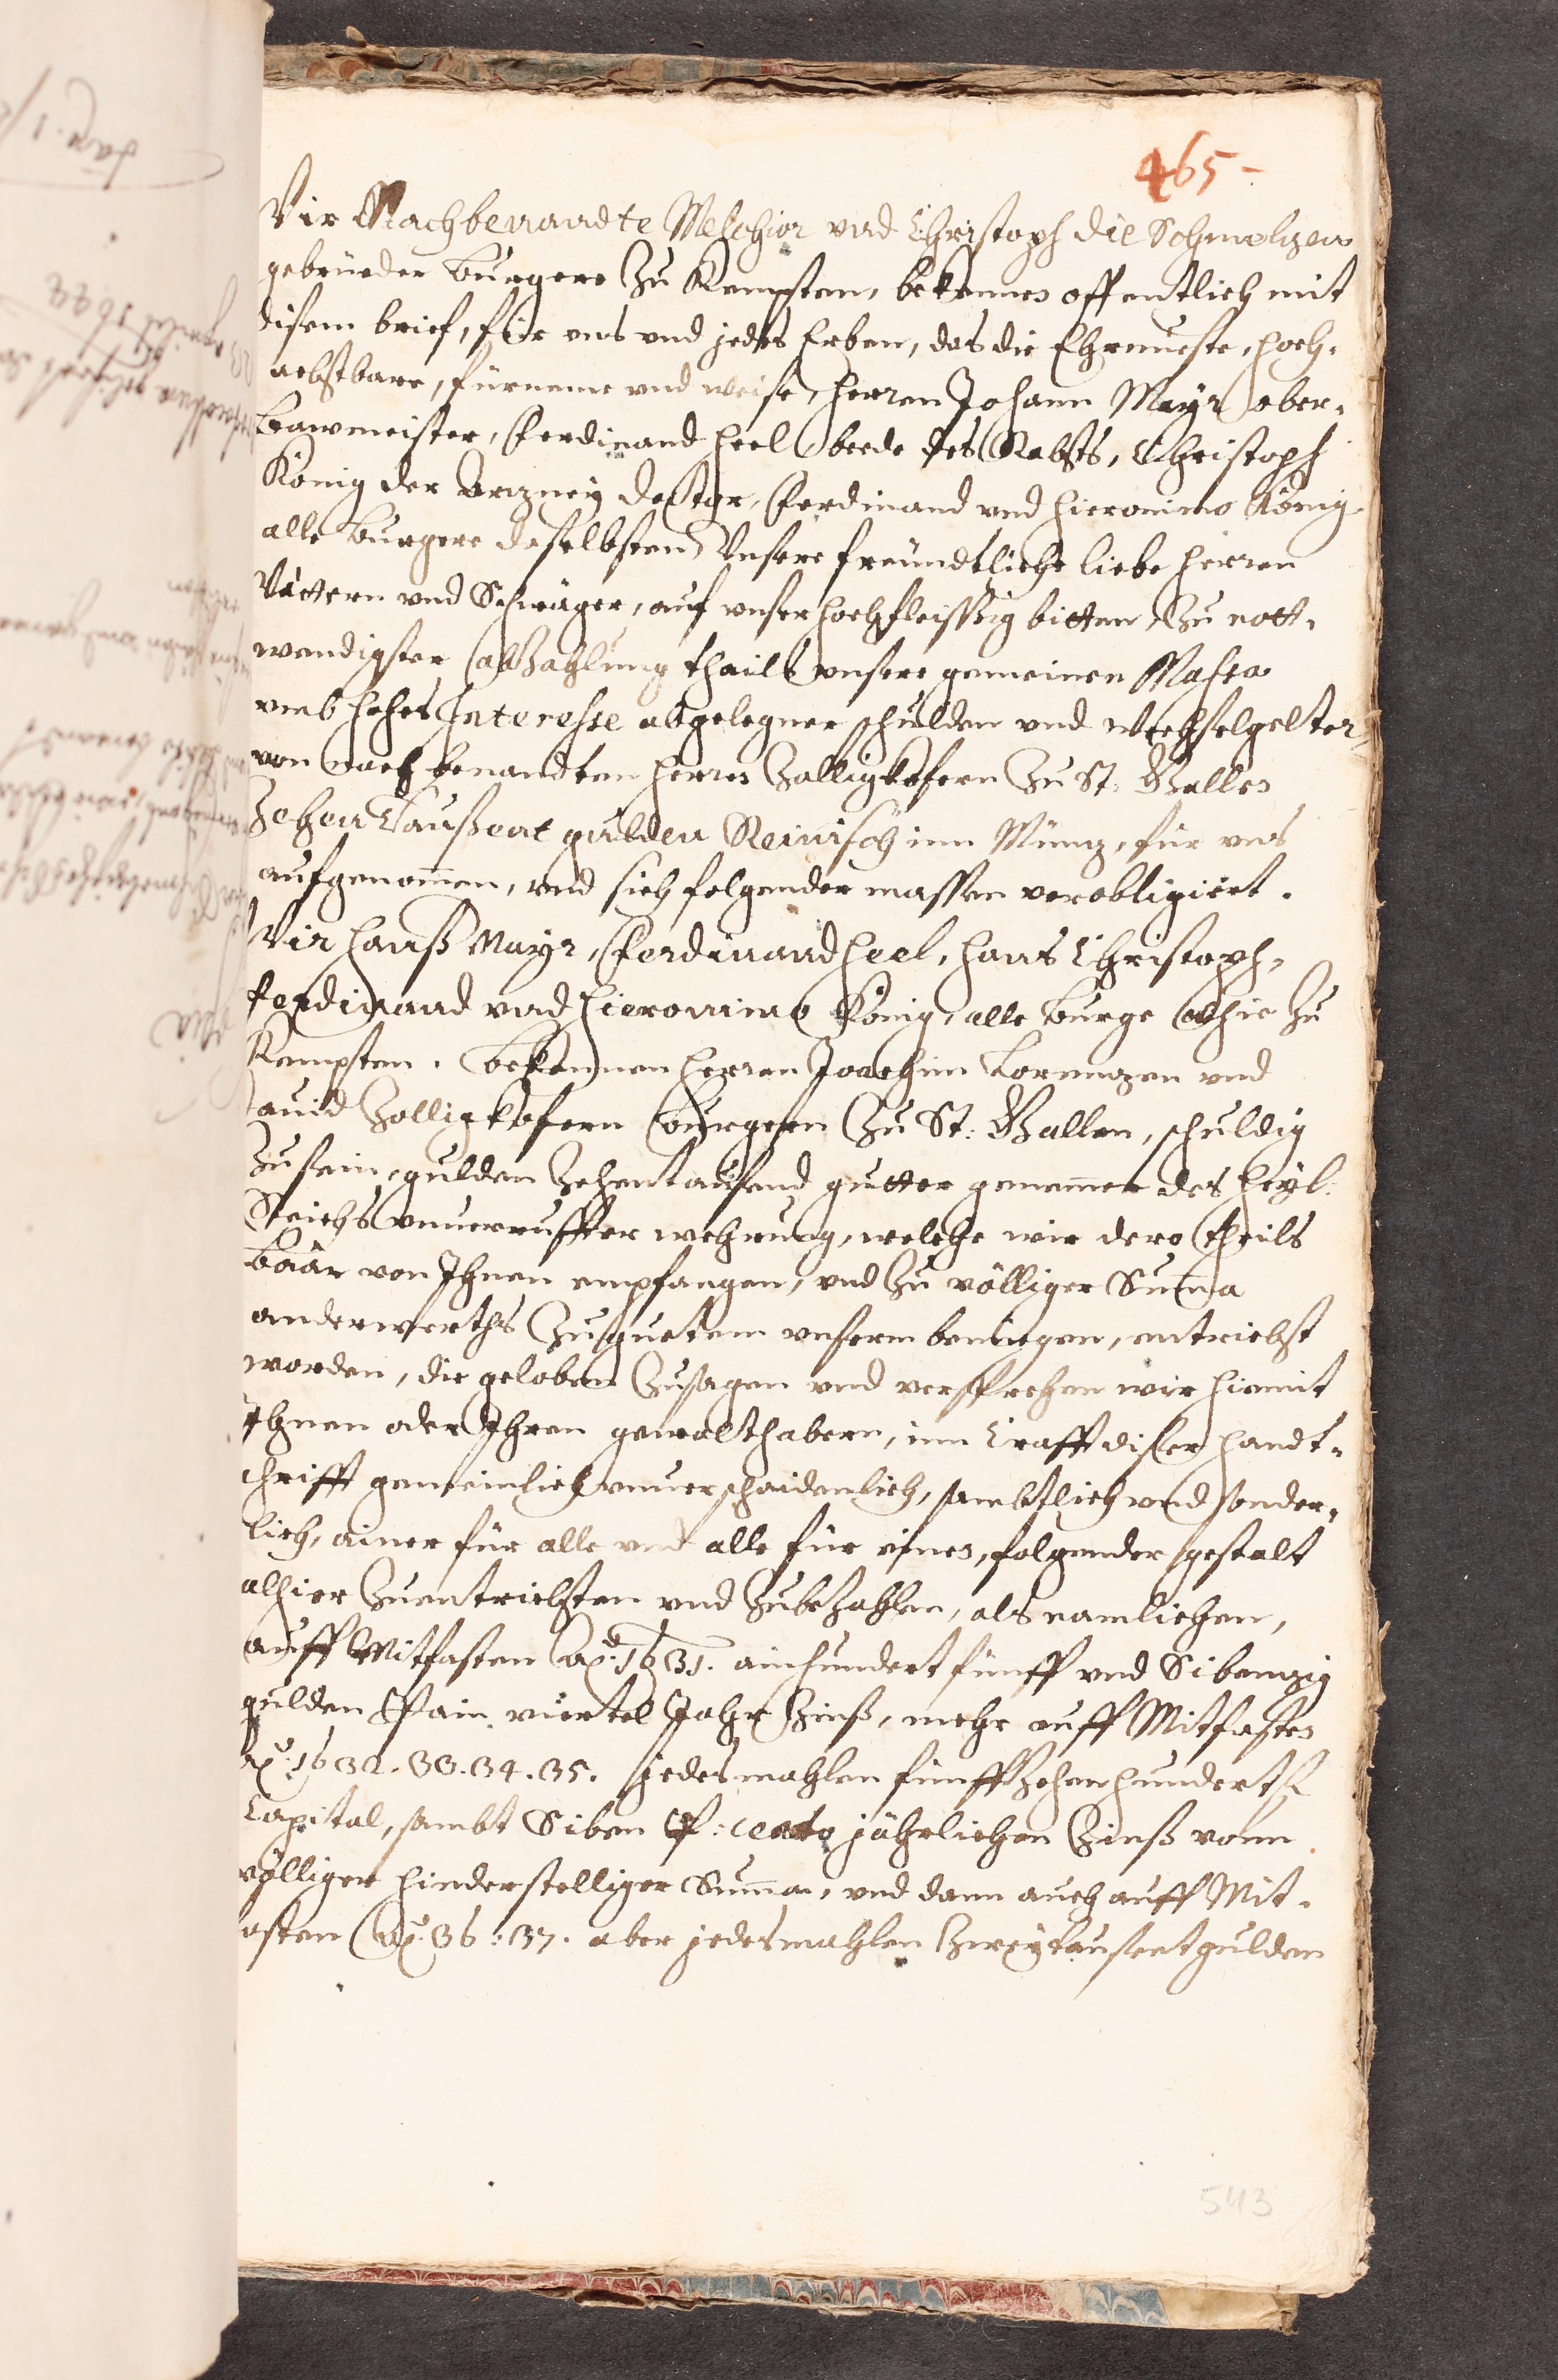 465-
Wir Nachbenandte Melchior vnd Christoph die Schmelzen
gebrüeder Burgere Zu Kempten, bekennen offentlich mit
disem brief, für vns vnd jedes Erben, das die Ehrnueste, hoch-
achtbare, fürneme vnd weise, herren Johann Mayr ober-
Bawmeister, Ferdinand heel beede des Rahts, Christoph
König der Arzney doctor, Ferdinand vnd Hieronimo König
alle Burgere daselbsten, Vnsere freündtliche liebe herren
Vättern vnd Schwäger, auf vnser hochfleissig bitten, Zu nott-
wendigster abZahlung thails vnsere gemeinen Massa
vmb hohes Interesse abgelegner schulden vnd Wechselgelter,
von nach benandten herren Zolligkofern Zu St: Gallen
Zehen Taußent gulden Reinisch inn Müntz, für vns
aufgenom̄en, vnd sich folgender massen verobligiert.
Wir hanß Mayr, Ferdinand heel, hans Christoph,
ferdinand vnd Hieronimo König, alle Burge alhie Zu
Kempten. bekennen herren Joachim Lorenzen vnd
Dauid Zolligkofern Burgern Zu St: Gallen, schuldig
Zu sein, gulden Zehentausend gutter genemer des heyl:
Reichs vnuerruffter wehrung, welche wir dero theils
baar von Ihnen empfangen, vnd Zu völliger Sum̄a
anderwerths Zu guetem vnserm beniegen, entricht
worden, die geloben Zusagen vnd versprechen wir hiemit
Ihnen oder Ihren gewalthabern, inn Crafft diser handt-
schrifft gemeinlich vnuerschaidenlich, sambtlich vnd sonder-
lich, ainer für alle vnd alle für einen, folgender gestalt
alhier Zuentrichten vnd ZubeZahlen, als namlichen,
auff Mitfasten Aō: 1631. ainhundert fünff vnd Sibenzig
gulden P ain viertel Jahr Zinß, mehr auff Mitfasten
Aō: 1632. 33. 34. 35. jedesmahlen fünffzehenhundert f
Capital, sambt Siben P: cento jährlichen Zinß vonn
völliger hinderstelliger Sum̄a, vnd dann auch auff Mit-
fasten Aō. 36: 37. aber jedesmahlen Zweytausent gulden
543